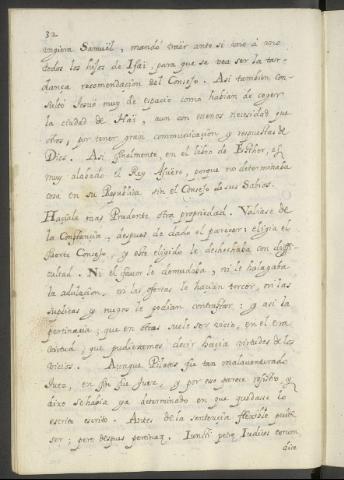 32
ungiera Samuël, mandó traèr ante sí uno à uno
todos los hijos de Isaí, para que se vea ser la tar-
dança recomendacion del Consejo. Asi tambien con-
sultó Josuè muy de espacio como habian de coger
la ciudad de Haí, aun con menos necesidad que
otros, por tener gran communicacion y respuestas de
Dios. Asi finalmente, en el libro de Esther, es
muy alabado el Rey Asuero, porque no determinaba
cosa en su Republica sin el Consejo de sus Sabios.
Haciale mas Prudente otra propiedad. Valiase de
la Constancia, despues de dado el parecer: eligia el
fuerte Consejo, y este eligido le desechaba con diffi-
cultad. Ni el la demudaba, ni le halagaba
la adulacion, ni las ofertas le hacian torcer, ni las
suplicas y ruegos le podian contrastar: y asi la
pertinacia, que en otros suele ser vicio, en el era
virtud, que pudieramos decir hacia virtudes de los
vicios. Aunque Pilatos fue tan malaventurado
Juez, en fin fue Juez, y por eso parece resistio, y
dixo se habia ya determinado en que quedase lo
escrito escrito. Antes de la sentencia flexible puede
ser; pero despues pertinaz. Iudices rerum
dice